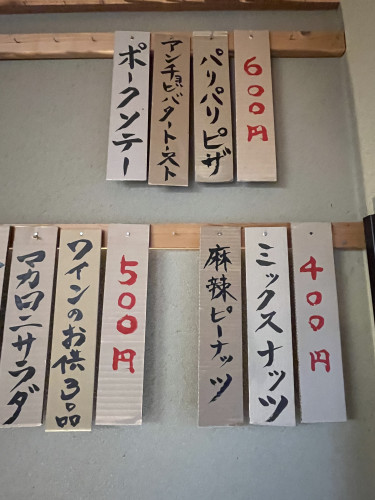 600円
パリパリピザ
アンチョビバタートースト
ポークソテー
400円
ミックスナッツ
麻辣ピーナッツ
500円
ワインのお供3品
マカロニサラダ